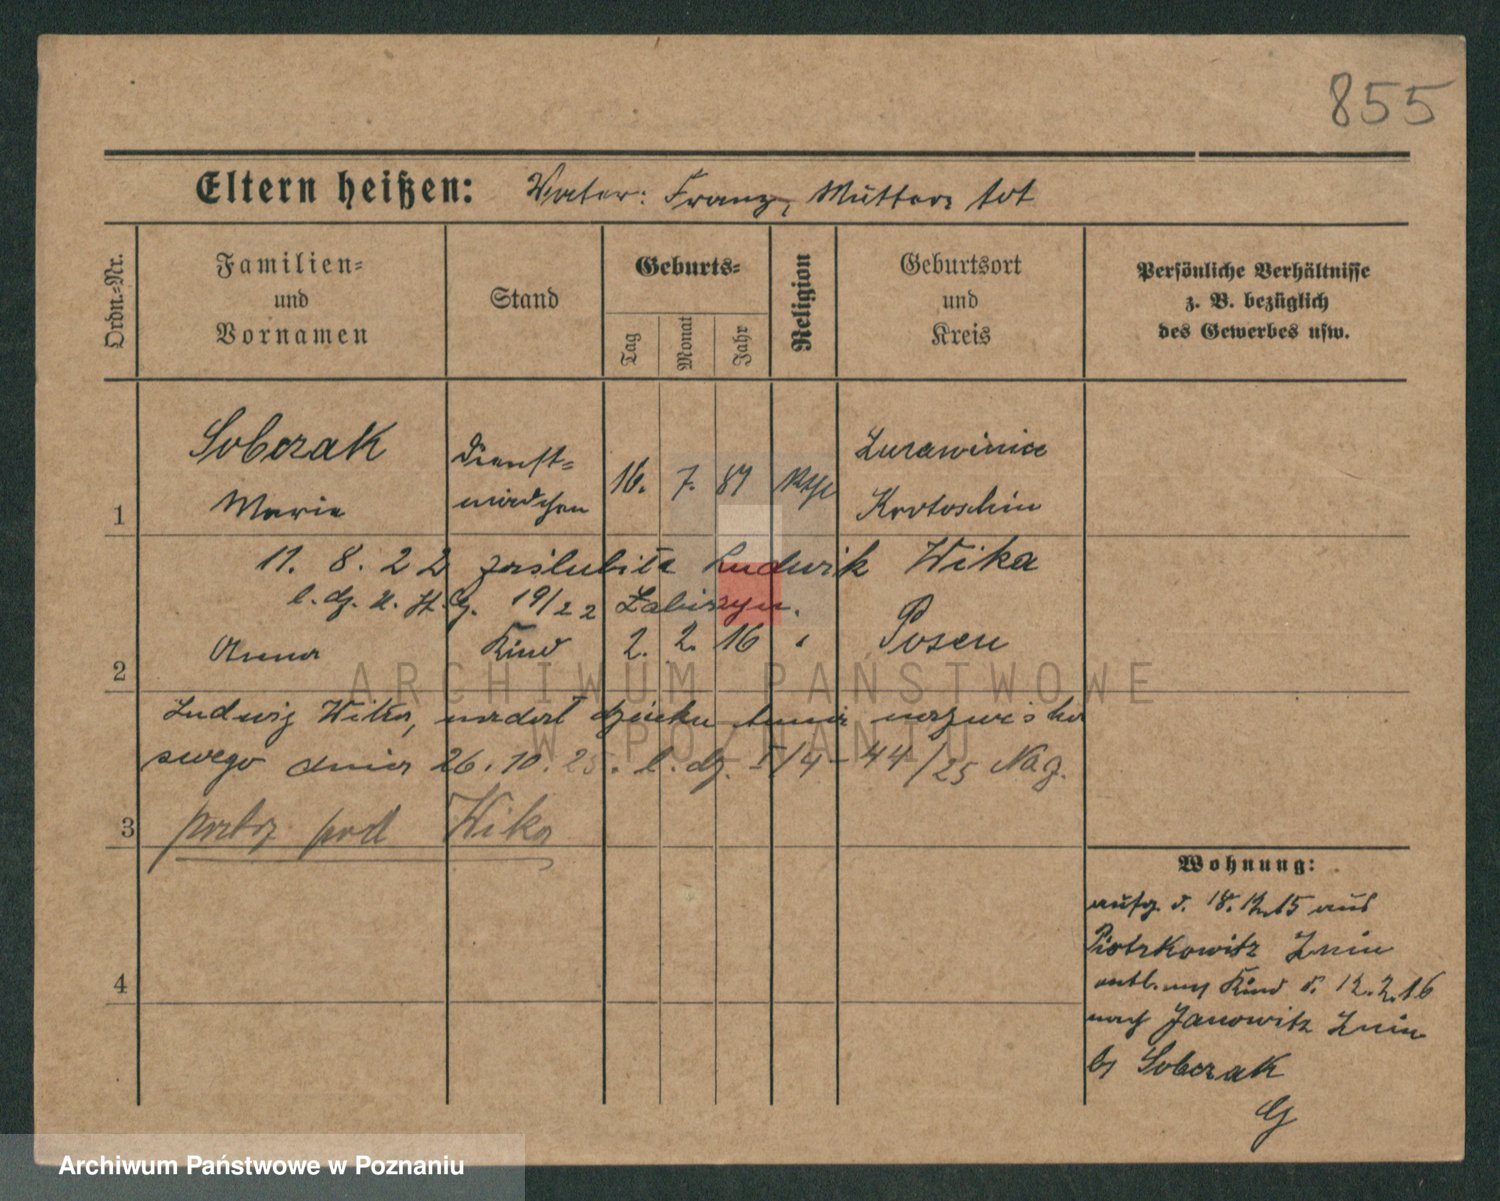 855
Eltern heißen: Vater: Franz, Mutter tot
Ordn.-Nr.
Familien-
und
Vornamen
Stand
Geburts-
Tag
Monat
Jahr
Religion
Geburtsort
und
Kreis
Persönliche Verhältnisse
z. B. bezüglich
des Gewerbes usw.
Sobczak Dienst- Zurawiniec
1 Marie mädchen 16. 7. 89 kth Krotoschin
11. 8. 22 zaślubiła Ludwik Wika
l. dz. U. St. C. 19/22 Łabiszyn.
2 Anna Kind 2. 2. 16 " Posen
Ludwig Wika, nadał dziecku Annie nazwiska
swego dnia 26. 10. 25. l. dz. I/4 - 44/25 Nag.
3 patrz pod Wika
4
Wohnung:
aufg. d. 18. 12. 15 aus
Piotrkowitz Znin
entl. mit Kind d. 12. 2. 16
nach Janowitz Znin
bei Sobczak
G
ARCHIWUM PAŃSTWOWE
W POZNANIU
Archiwum Państwowe w Poznaniu